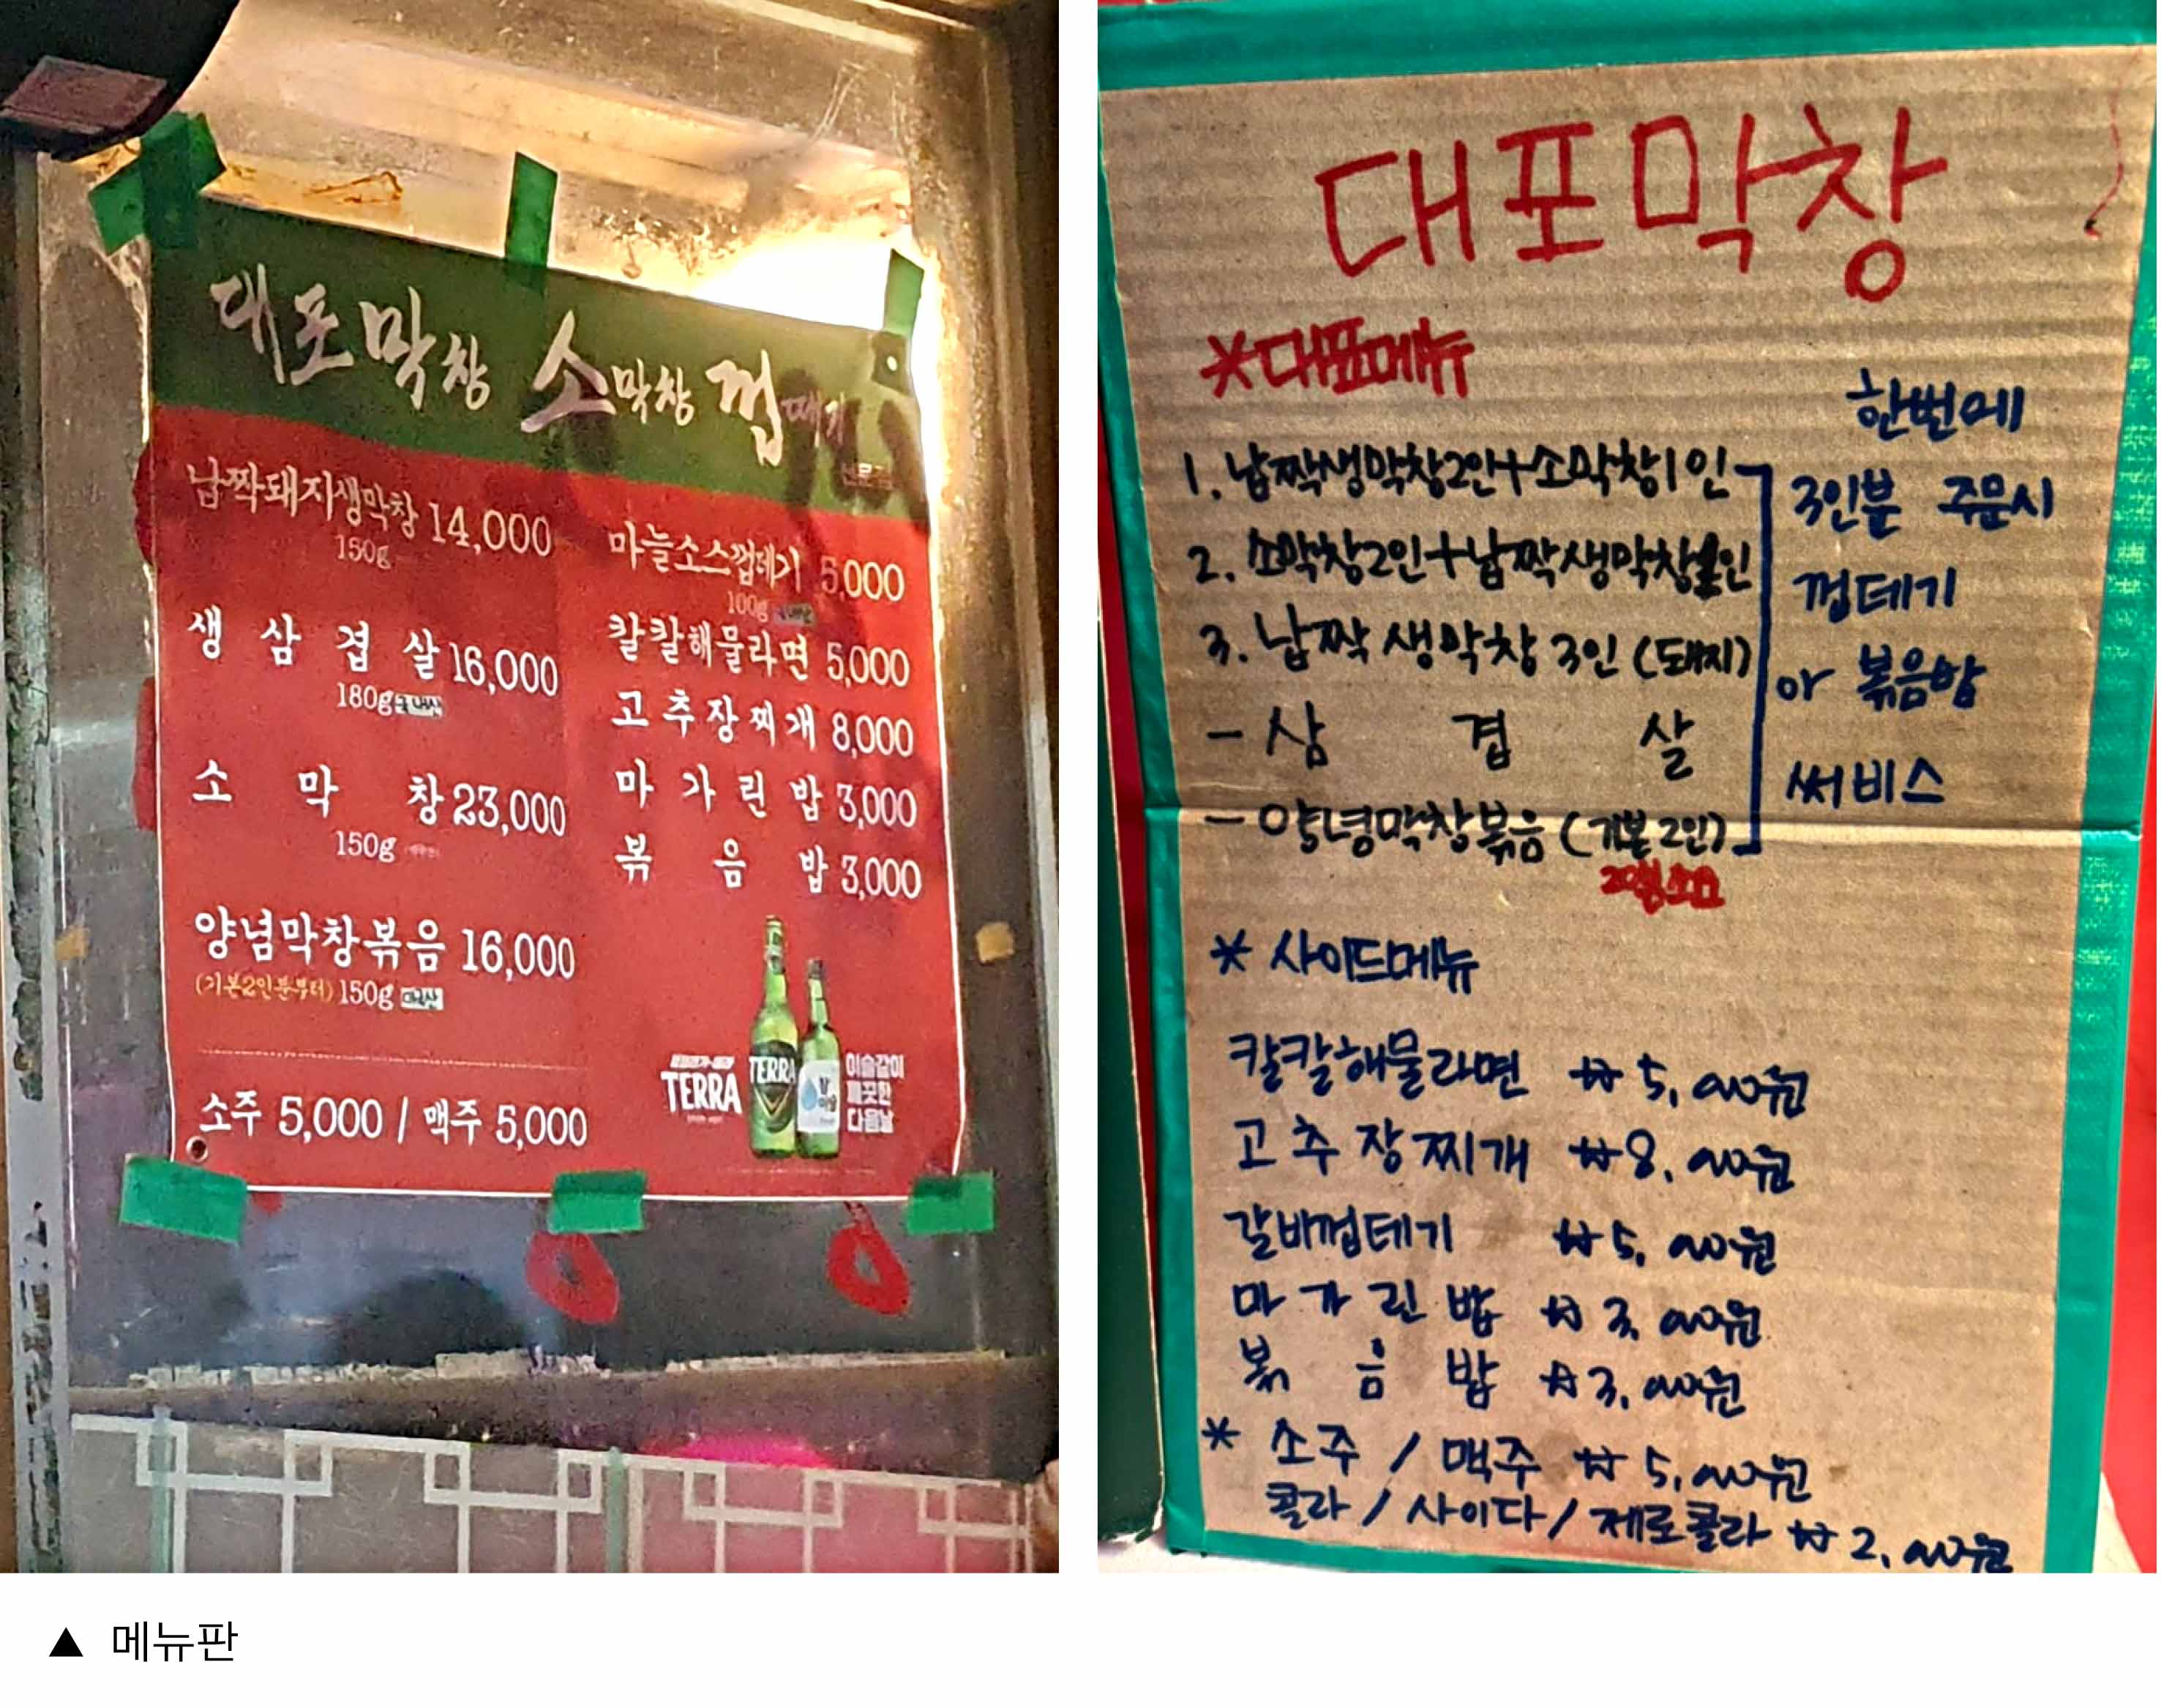 대포막창 소막창 껍데기
납짝돼지생막창 14,000
150g
생삼겹살 16,000
180g 국내산
소막창 23,000
150g
양념막창볶음 16,000
(기본2인분부터) 150g
소주 5,000 / 맥주 5,000
마늘소스껍데기 5,000
100g
칼칼해물라면 5,000
고추장찌개 8,000
마가린밥 3,000
볶음밥 3,000
TERRA
TERRA
이슬같이
깨끗한
다음날
대포막창
*대표메뉴
1. 납짝생막창2인+소막창1인
2. 소막창2인+납짝생막창1인
3. 납짝생막창 3인 (돼지)
- 삼겹살
- 양념막창볶음 (기본2인)
20분소요
한번에
3인분 주문시
껍데기
or 볶음밥
써비스
* 사이드메뉴
칼칼해물라면 ₩5,000원
고추장찌개 ₩8,000원
갈비껍데기 ₩5,000원
마가린밥 ₩3,000원
볶음밥 ₩3,000원
* 소주 / 맥주 ₩5,000원
콜라 / 사이다 / 제로콜라 ₩2,000원
▲ 메뉴판